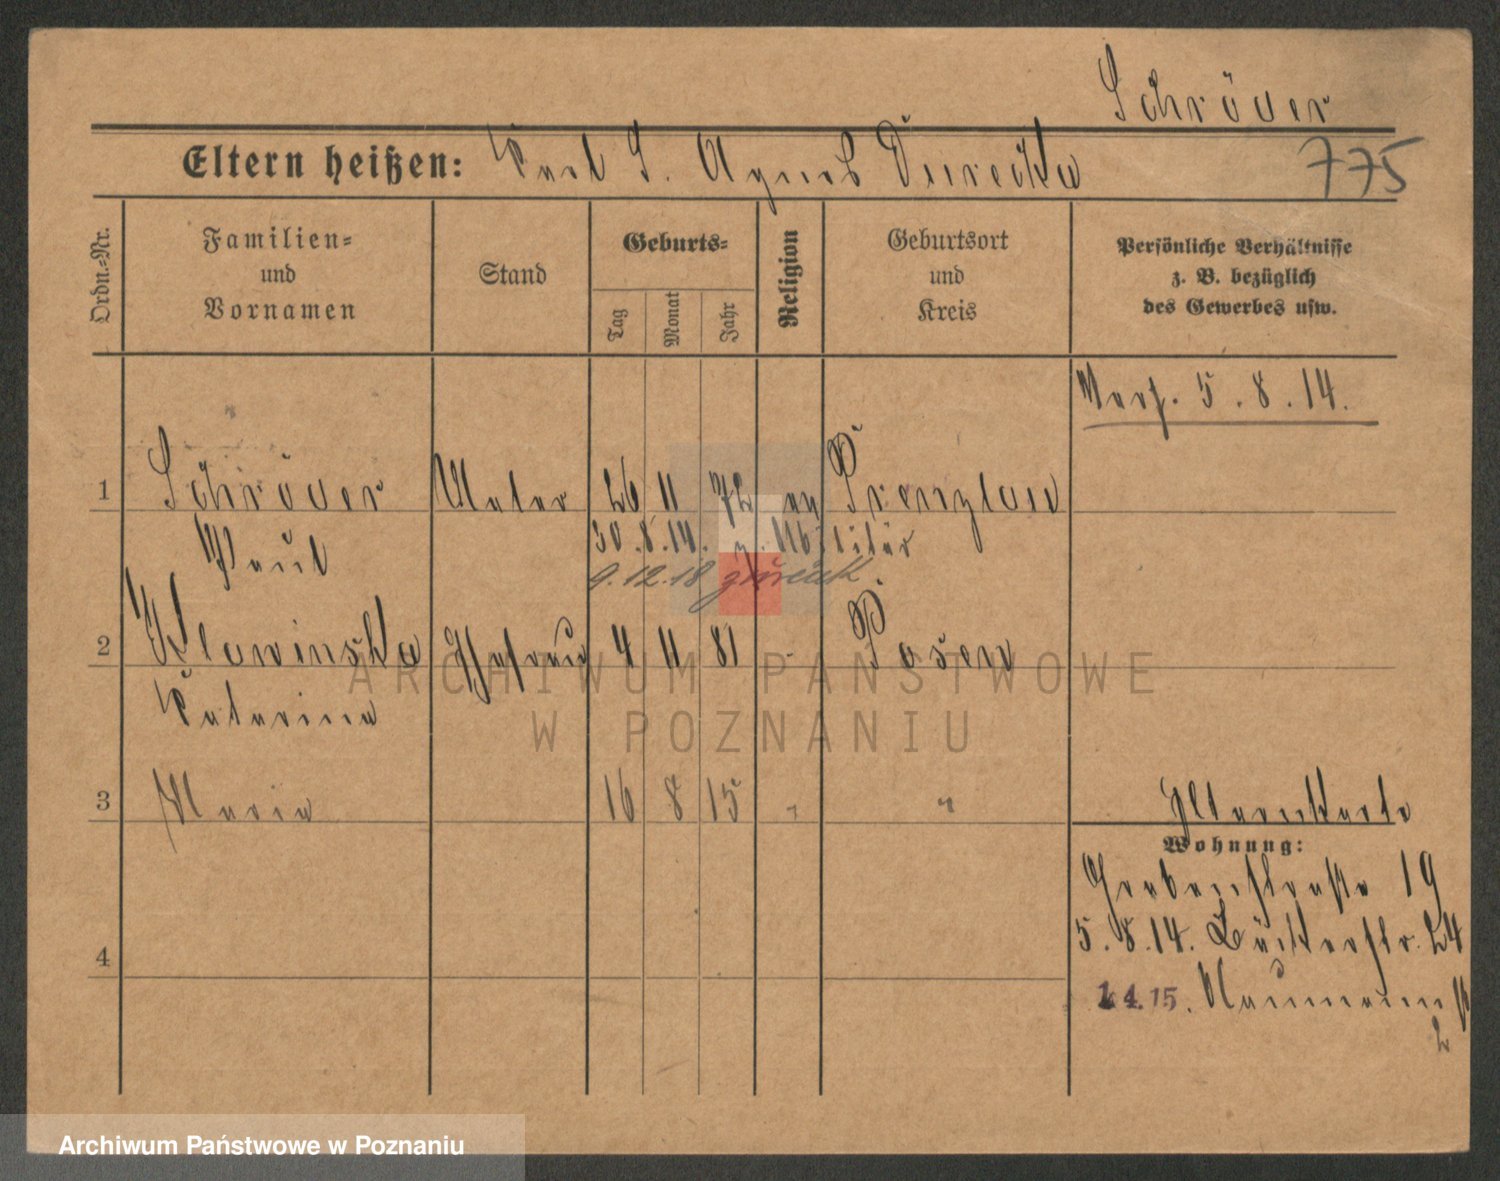 Schröder
Eltern heißen: Karl S. Agnes
775
Ordn.=Nr.
Familien=
und
Vornamen
Stand
Geburts=
Tag
Monat
Jahr
Religion
Geburtsort
und
Kreis
Persönliche Verhältnisse
z. B. bezüglich
des Gewerbes usw.
5.8.14.
1 Schröder 26 11 72 ev Prenzlau
Paul
30.8.14. z. Militär
9.12.18 zurück
2 Ehefrau 4 11 81 Posen
Katarina
3 Maria 16 8 15 " "
Elternkarte
Wohnung:
Grabenstraße 19
5.8.14. Bäckerstr. 24
1.4.15. Naumannstr
2
4
ARCHIWUM PAŃSTWOWE
W POZNANIU
Archiwum Państwowe w Poznaniu